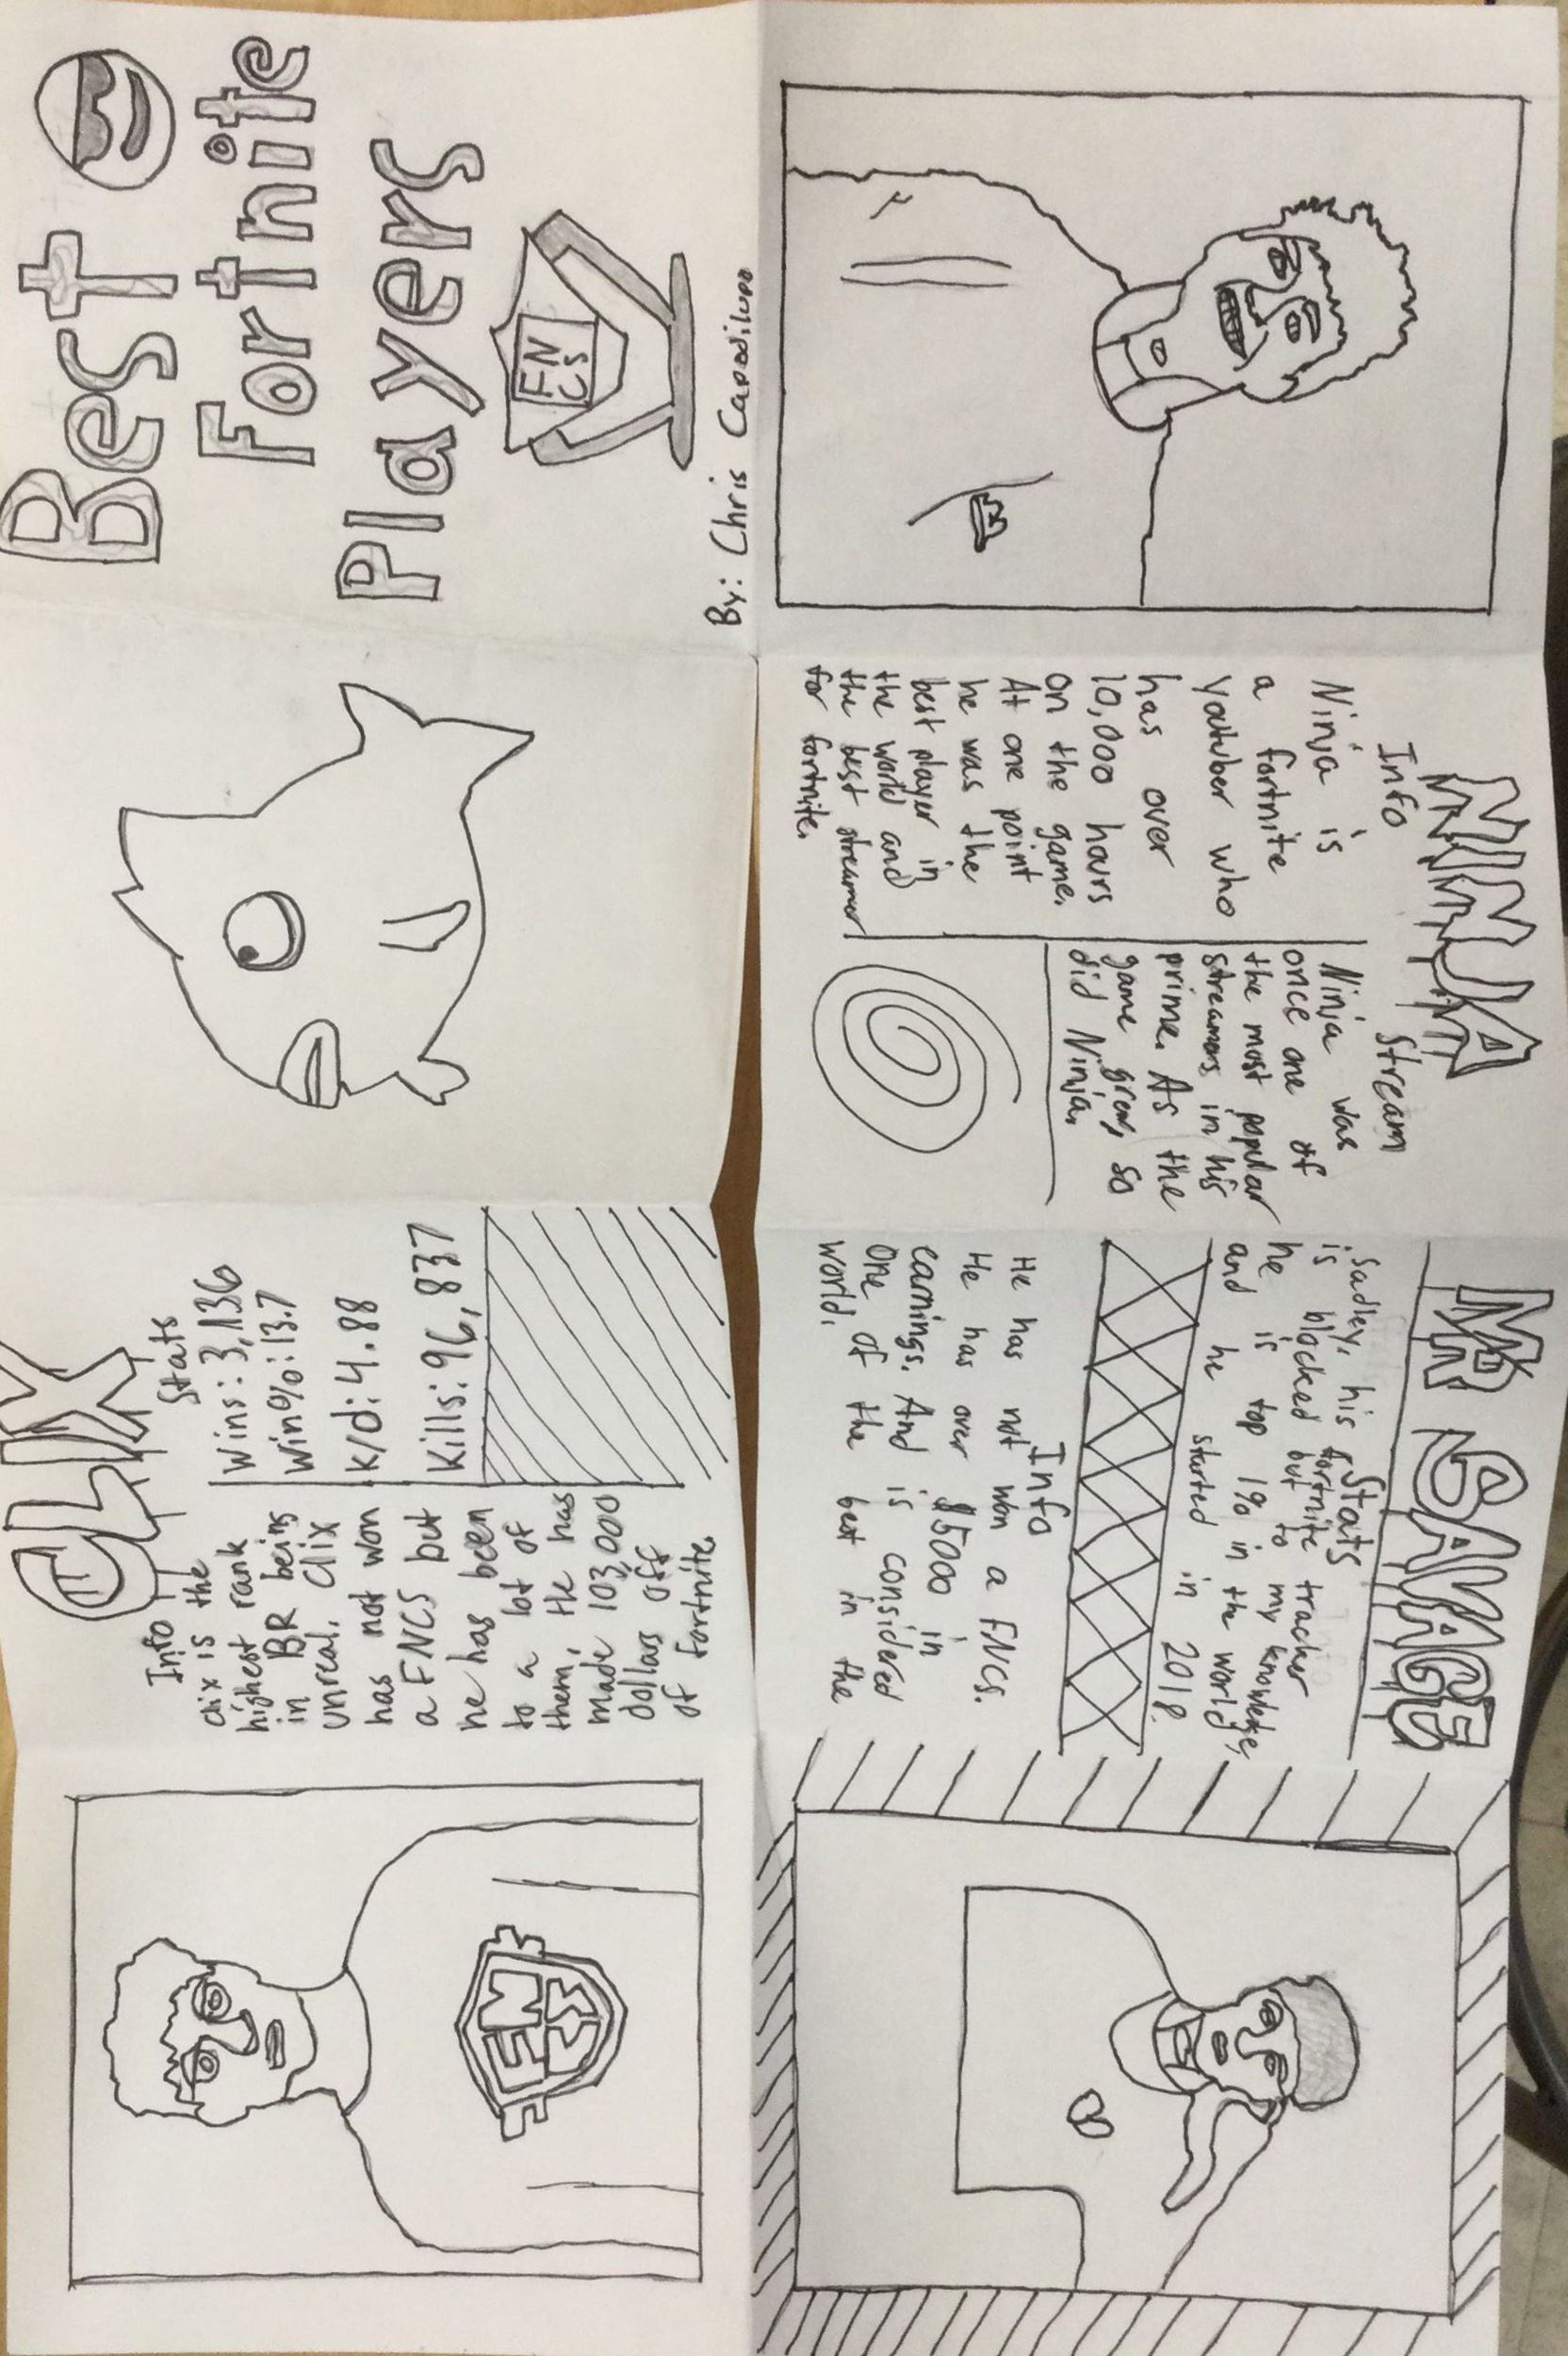 Best
Fortnite
Players
FN
CS
By: Chris Capodilupo
NINJA
Info
Ninja is
a fortnite
youtuber who
has over
10,000 hours
on the game.
At one point
he was the
best player in
the world and
the best streamer
for fortnite.
Stream
Ninja was
once one of
the most popular
streamers in his
prime. As the
game grew, so
did Ninja.
MR SAVAGE
Stats
Sadley, his fortnite tracker
is blocked but to my knowledge,
he is top 1% in the world
and he started in 2018.
Info
He has not won a FNCS.
He has over $5000 in
earnings. And is considered
one of the best in the
world.
CLIX
Stats
Wins: 3,136
Win%: 13.7
K/d: 4.88
Kills: 96,837
Info
Clix is the
highest rank
in BR being
unreal. Clix
has not won
a FNCS but
he has been
to a lot of
them, He has
made 103,000
dollars off
of fortnite.